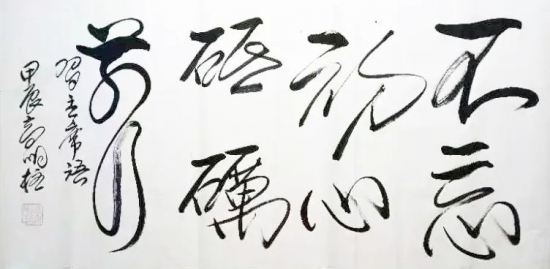 不忘
初心
砥礪
前行
習主席語
甲辰高明柱